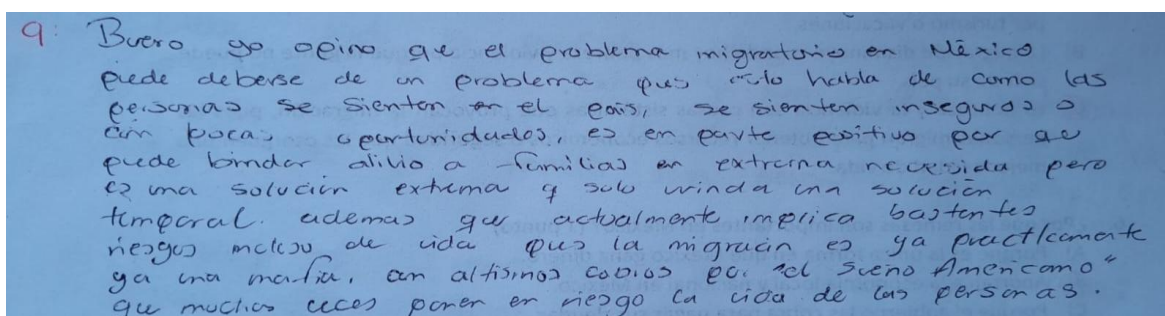 9: Bueno yo opino que el problema migratorio en México
puede deberse de un problema pues solo habla de como las
personas se sienten en el país, se sienten inseguros o
con pocas oportunidades, es en parte positivo por que
puede brindar alivio a familias en extrema necesida pero
es una solución extrema y solo vrinda una solución
temporal. ademas que actualmente implica bastentes
riesgos incluso de vida pues la migración es ya practicamente
ya una mafia, con altisimos cobros por "el Sueño Americano"
que muchas veces ponen en riesgo la vida de las personas.